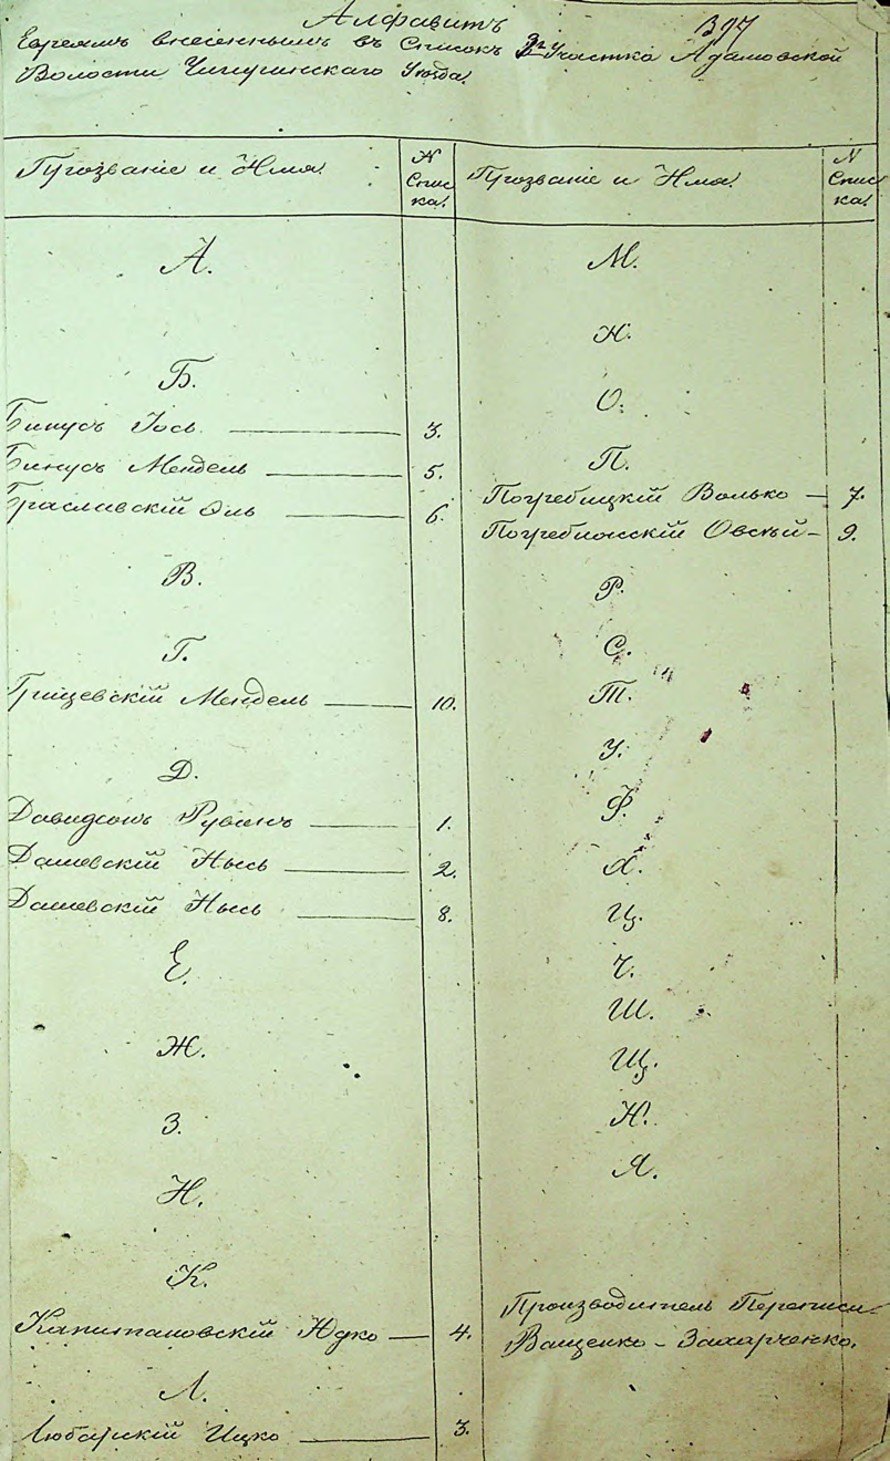 Алфавитъ
397
Евреямъ внесеннымъ въ Списокъ 2го Участка Адамовской
Волости Чигиринскаго Уѣзда.
Прозваніе и Имя.
N Списка.
Прозваніе и Имя.
N Списка.
А.
Б.
Бинусъ Іось 3.
Бинусъ Мендель 5.
Браславскій Эль 6.
В.
Г.
Грищевскій Мендель 10.
Д.
Давидсонъ Рувинъ 1.
Дашевскій Нысь 2.
Дашевскій Нысь 8.
Е.
Ж.
З.
И.
К.
Капитановскій Юдко 4.
Л.
Любарскій Ицко 3.
М.
Н.
О.
П.
Погребицкій Волько 7.
Погребисскій Овсѣй 9.
Р.
С.
Т.
У.
Ф.
Х.
Ц.
Ч.
Ш.
Щ.
Ю.
Я.
Производитель Переписи
Ващенко-Захарченко.